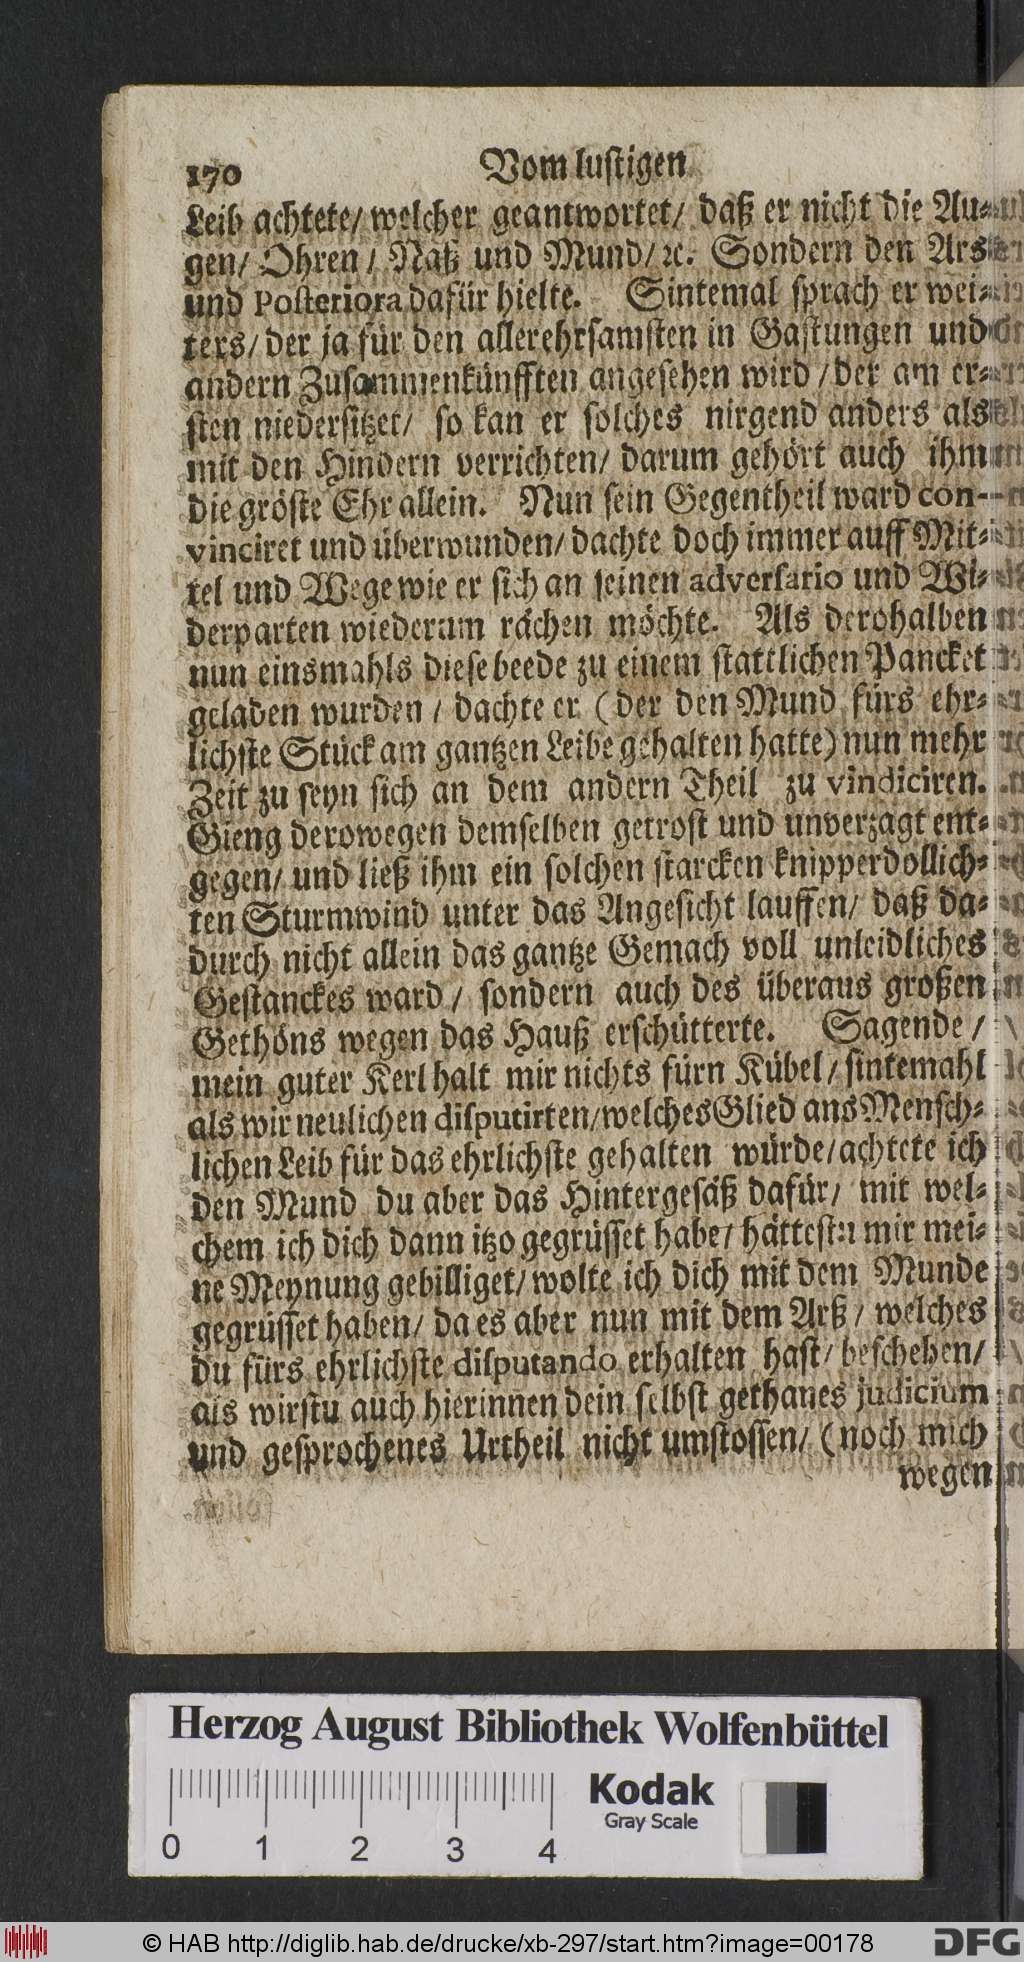 170 Vom lustigen
Leib achtete/ welcher geantwortet/ daß er nicht die Au-
gen/ Ohren/ Naß und Mund/ ꝛc. Sondern den Ars
und Posteriora dafür hielte. Sintemal sprach er wei-
ters/ der ja für den allerehrsamsten in Gastungen und
andern Zusammenkünfften angesehen wird/ der am er-
sten niedersitzet/ so kan er solches nirgend anders als
mit den Hindern verrichten/ darum gehört auch ihm
die gröste Ehr allein. Nun sein Gegentheil ward con-
vinciret und überwunden/ dachte doch immer auff Mit-
tel und Wege wie er sich an seinen adversario und Wi-
derparten wiederum rächen möchte. Als derohalben
nun einsmahls diese beede zu einem stattlichen Pancket
geladen wurden/ dachte er (der den Mund fürs ehr-
lichste Stück am gantzen Leibe gehalten hatte) nun mehr
Zeit zu seyn sich an dem andern Theil zu vindiciren.
Gieng derowegen demselben getrost und unverzagt ent-
gegen/ und ließ ihm ein solchen starcken knipperdollich-
ten Sturmwind unter das Angesicht lauffen/ daß da-
durch nicht allein das gantze Gemach voll unleidliches
Gestanckes ward/ sondern auch des überaus großen
Gethöns wegen das Hauß erschütterte. Sagende/
mein guter Kerl halt mir nichts fürn Kübel/ sintemahl
als wir neulichen disputirten/ welches Glied ans Mensch-
lichen Leib für das ehrlichste gehalten würde/ achtete ich
den Mund du aber das Hintergesäß dafür/ mit wel-
chem ich dich dann itzo gegrüsset habe/ hättestu mir mei-
ne Meynung gebilliget/ wolte ich dich mit dem Munde
gegrüsset haben/ da es aber nun mit dem Arß/ welches
du fürs ehrlichste disputando erhalten hast/ beschehen/
als wirstu auch hierinnen dein selbst gethanes judicium
und gesprochenes Urtheil nicht umstossen/ (noch mich
wegen
Herzog August Bibliothek Wolfenbüttel
Kodak
Gray Scale
0 1 2 3 4
© HAB http://diglib.hab.de/drucke/xb-297/start.htm?image=00178
DFG